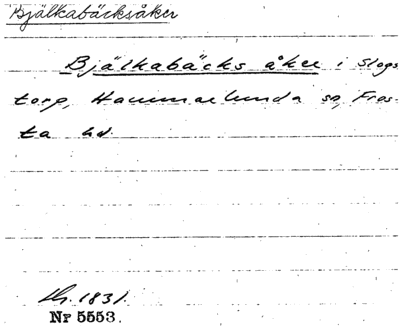 Bjälkabäcksåker
Bjälkabäcks åker i Slogs
torp, Hammarlunda sn, Fros-
ta hd.
1831.
Nr 5553.